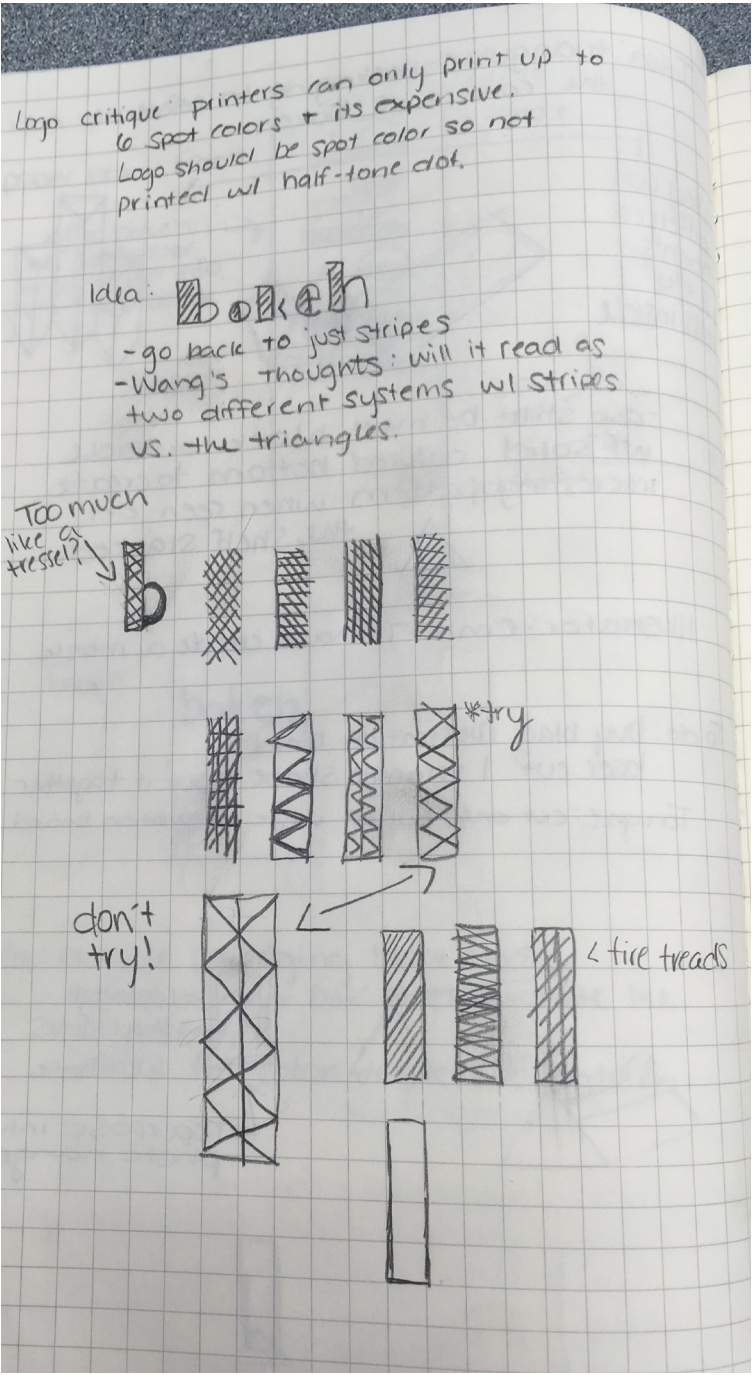 Logo critique: printers can only print up to
6 spot colors + its expensive.
Logo should be spot color so not
printed w/ half-tone dot.
Idea:
-go back to just stripes
-Wang's thoughts: will it read as
two different systems w/ stripes
vs. the triangles.
Too much
like a
tressel?
b
*try
don't
try!
< tire treads